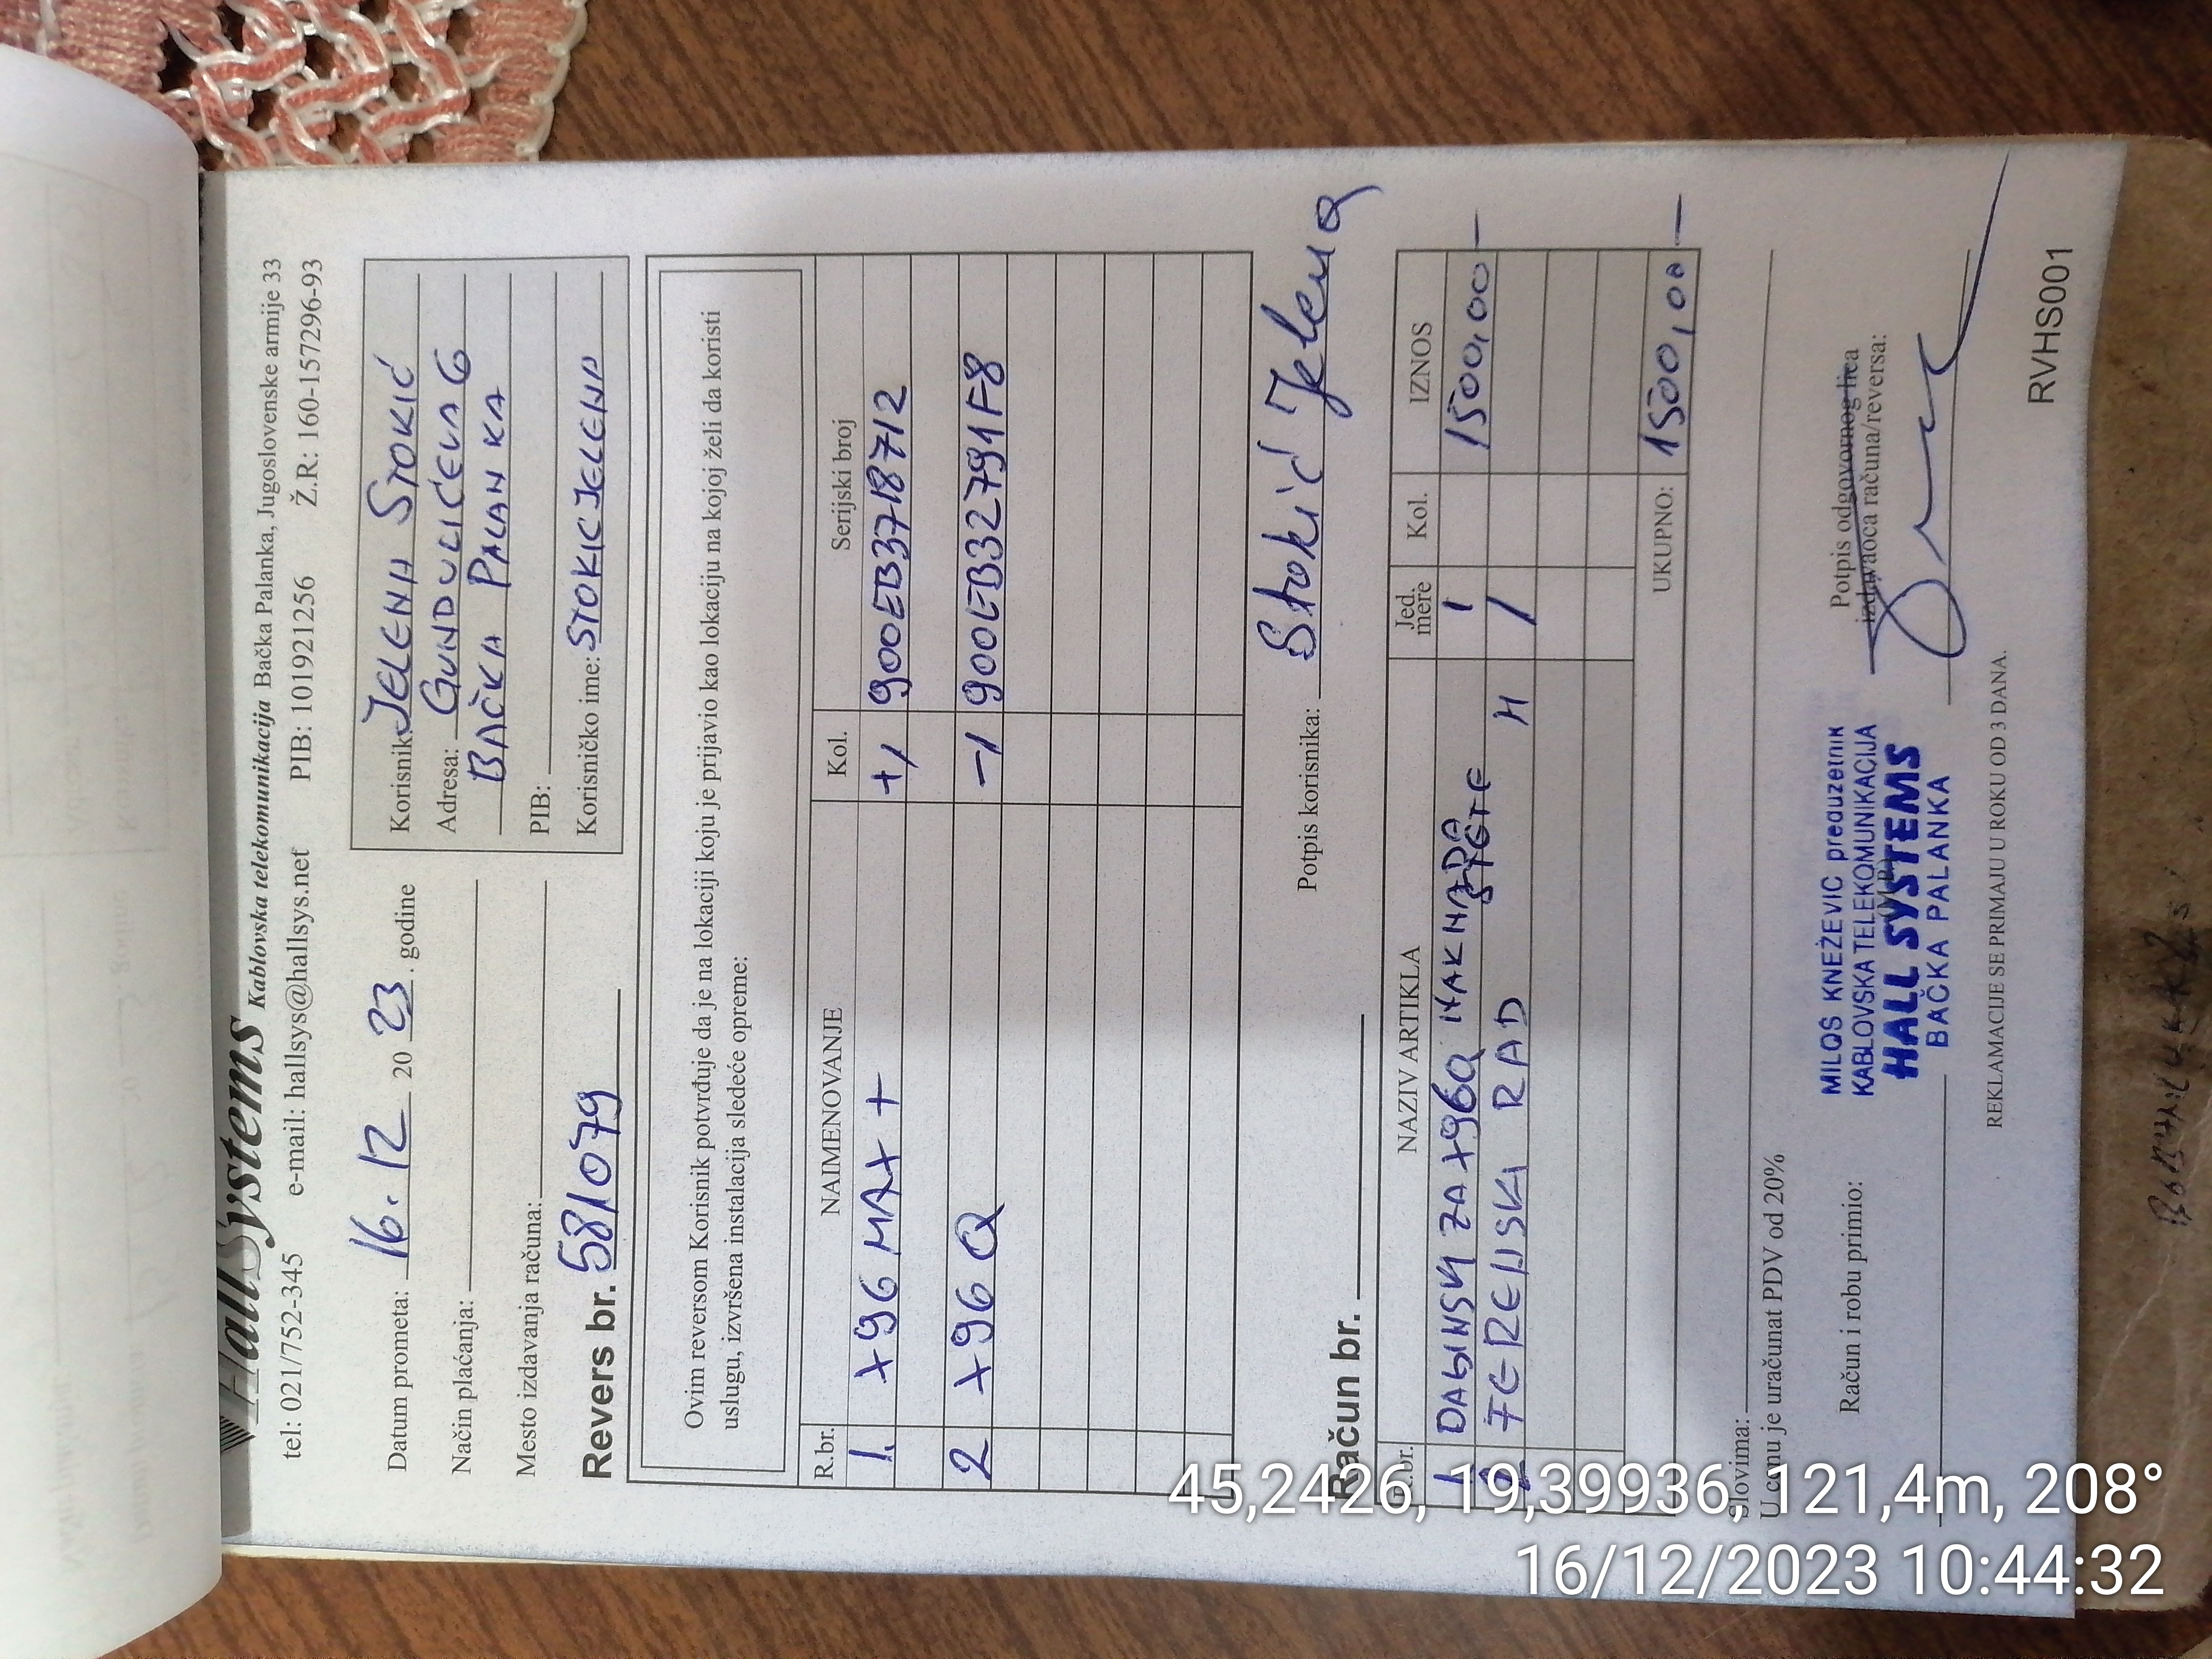 HallSystems Kablovska telekomunikacija Bačka Palanka, Jugoslovenske armije 33
tel: 021/752-345 e-mail: hallsys@hallsys.net PIB: 101921256 Ž.R: 160-157296-93
Datum prometa: 16.12 20 23. godine
Način plaćanja:
Mesto izdavanja računa:
Revers br. 581079
Korisnik: JELENA STOKIĆ
Adresa: GUNDULIĆEVA 6
BAČKA PALANKA
PIB:
Korisničko ime: STOKICJELENA
Ovim reversom Korisnik potvrđuje da je na lokaciji koju je prijavio kao lokaciju na kojoj želi da koristi
uslugu, izvršena instalacija sledeće opreme:
R.br. NAIMENOVANJE Kol. Serijski broj
1. X96 MAX + +1 900EB3718712
2 X96 Q -1 900EB32791F8
Potpis korisnika: Stokić Jelena
Račun br.
R.br. NAZIV ARTIKLA Jed. mere Kol. IZNOS
1 DALJINSKI ZA X96Q NAKNADA 1 1500,00 —
2 TERENSKI RAD ŠTETE H 1
UKUPNO: 1500,00 —
Slovima:
U cenu je uračunat PDV od 20%
Račun i robu primio:
MILOŠ KNEŽEVIĆ preduzetnik
KABLOVSKA TELEKOMUNIKACIJA
HALL SYSTEMS
BAČKA PALANKA
Potpis odgovornog lica
izdavaoca računa/reversa:
REKLAMACIJE SE PRIMAJU U ROKU OD 3 DANA.
RVHS001
45,2426, 19,39936, 121,4m, 208°
16/12/2023 10:44:32